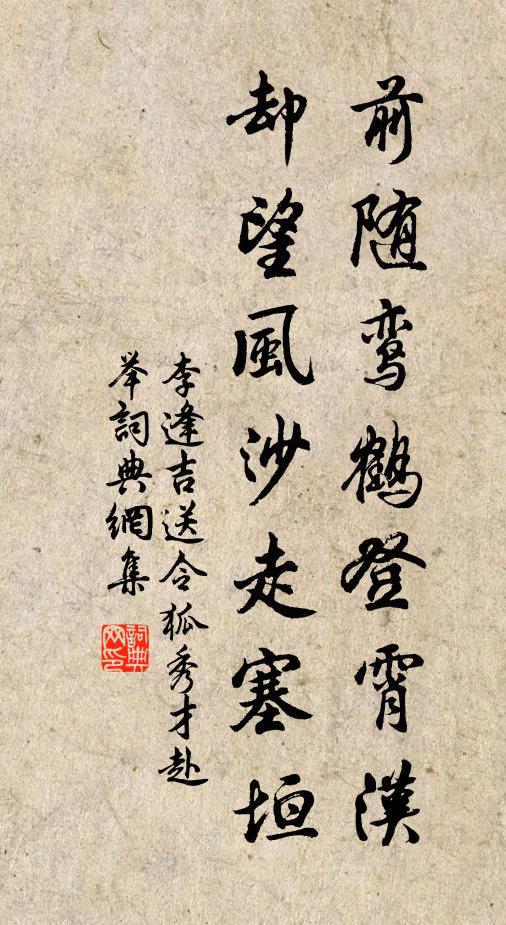 前随鸾鹤登霄漢
却望風沙走塞垣
李逢吉送令狐秀才赴
举詞典網集
詞典网印